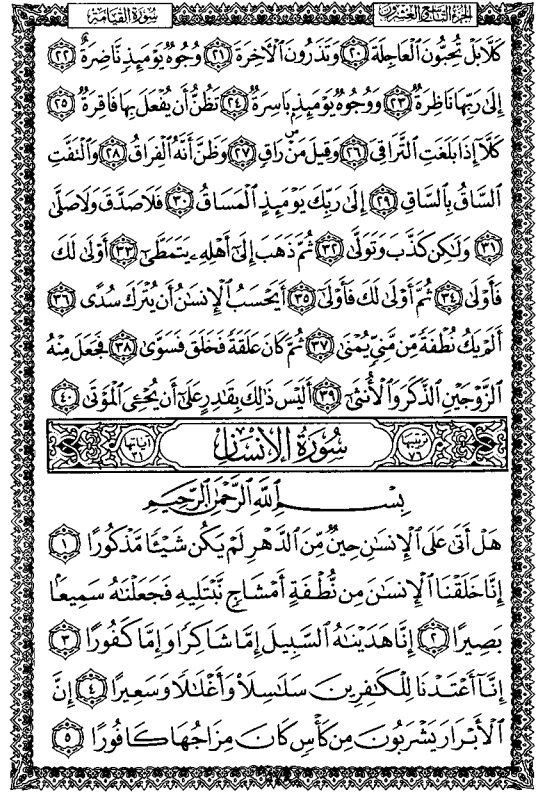 الجزء التاسع والعشرون سورة القيامة
كَلَّا بَلْ تُحِبُّونَ ٱلْعَاجِلَةَ ٢٠ وَتَذَرُونَ ٱلْءَاخِرَةَ ٢١ وُجُوهٌ يَوْمَئِذٍ نَّاضِرَةٌ ٢٢
إِلَىٰ رَبِّهَا نَاظِرَةٌ ٢٣ وَوُجُوهٌ يَوْمَئِذٍۭ بَاسِرَةٌ ٢٤ تَظُنُّ أَن يُفْعَلَ بِهَا فَاقِرَةٌ ٢٥
كَلَّآ إِذَا بَلَغَتِ ٱلتَّرَاقِىَ ٢٦ وَقِيلَ مَنْ ۜ رَاقٍ ٢٧ وَظَنَّ أَنَّهُ ٱلْفِرَاقُ ٢٨ وَٱلْتَفَّتِ
ٱلسَّاقُ بِٱلسَّاقِ ٢٩ إِلَىٰ رَبِّكَ يَوْمَئِذٍ ٱلْمَسَاقُ ٣٠ فَلَا صَدَّقَ وَلَا صَلَّىٰ
٣١ وَلَٰكِن كَذَّبَ وَتَوَلَّىٰ ٣٢ ثُمَّ ذَهَبَ إِلَىٰٓ أَهْلِهِۦ يَتَمَطَّىٰٓ ٣٣ أَوْلَىٰ لَكَ
فَأَوْلَىٰ ٣٤ ثُمَّ أَوْلَىٰ لَكَ فَأَوْلَىٰٓ ٣٥ أَيَحْسَبُ ٱلْإِنسَٰنُ أَن يُتْرَكَ سُدًى ٣٦
أَلَمْ يَكُ نُطْفَةً مِّن مَّنِىٍّ يُمْنَىٰ ٣٧ ثُمَّ كَانَ عَلَقَةً فَخَلَقَ فَسَوَّىٰ ٣٨ فَجَعَلَ مِنْهُ
ٱلزَّوْجَيْنِ ٱلذَّكَرَ وَٱلْأُنثَىٰٓ ٣٩ أَلَيْسَ ذَٰلِكَ بِقَٰدِرٍ عَلَىٰٓ أَن يُحْـِۧىَ ٱلْمَوْتَىٰ ٤٠
ترتيبها ٧٦ سورة الإنسان آياتها ٣١
بِسْمِ ٱللَّهِ ٱلرَّحْمَٰنِ ٱلرَّحِيمِ
هَلْ أَتَىٰ عَلَى ٱلْإِنسَٰنِ حِينٌ مِّنَ ٱلدَّهْرِ لَمْ يَكُن شَيْـًٔا مَّذْكُورًا ١
إِنَّا خَلَقْنَا ٱلْإِنسَٰنَ مِن نُّطْفَةٍ أَمْشَاجٍ نَّبْتَلِيهِ فَجَعَلْنَٰهُ سَمِيعًۢا
بَصِيرًا ٢ إِنَّا هَدَيْنَٰهُ ٱلسَّبِيلَ إِمَّا شَاكِرًا وَإِمَّا كَفُورًا ٣
إِنَّآ أَعْتَدْنَا لِلْكَٰفِرِينَ سَلَٰسِلَا۟ وَأَغْلَٰلًا وَسَعِيرًا ٤ إِنَّ
ٱلْأَبْرَارَ يَشْرَبُونَ مِن كَأْسٍ كَانَ مِزَاجُهَا كَافُورًا ٥